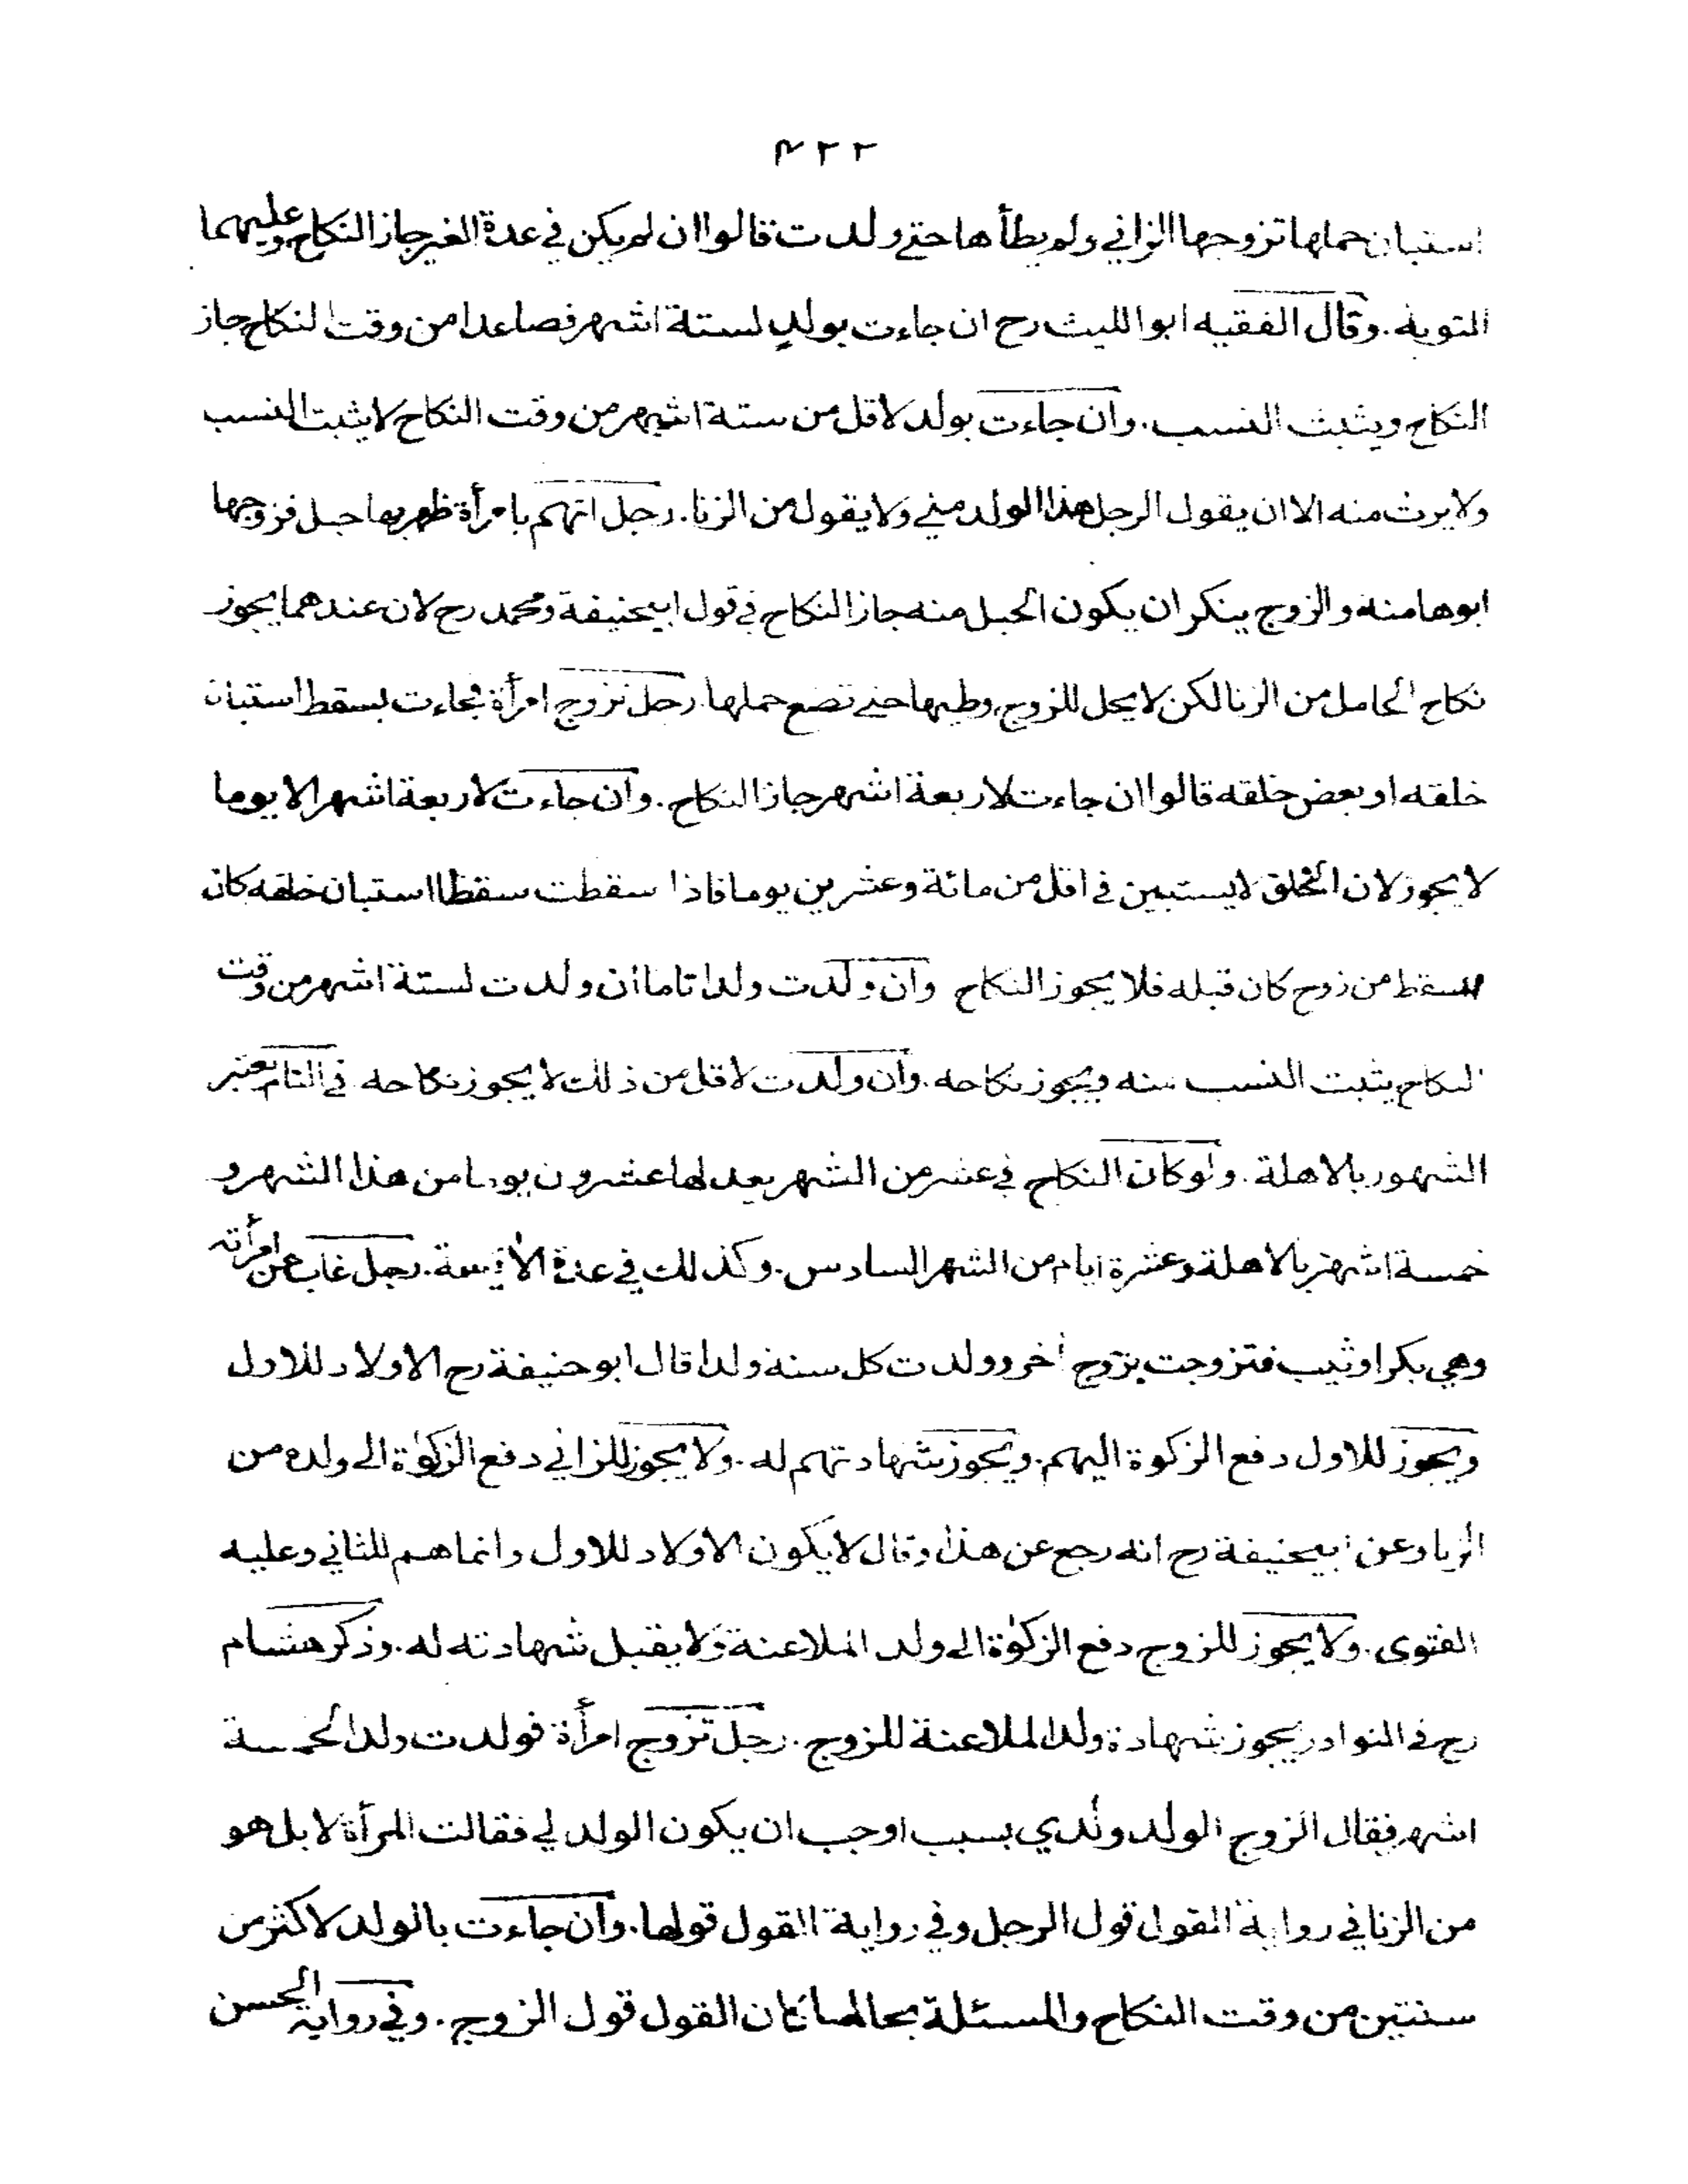 ٤٢٢
استبان حملها تزوجها الزاني ولم يطأها حتى ولدت قالوا ان لم يكن في عدة الغير جاز النكاح وعليهما
التوبة. وقال الفقيه ابو الليث رح ان جاءت بولد لستة اشهر فصاعدا من وقت النكاح جاز
النكاح ويثبت النسب. وان جاءت بولد لاقل من ستة اشهر من وقت النكاح لا يثبت النسب
ولا يرث منه الا ان يقول الرجل هذا الولد مني ولا يقول من الزنا. رجل اتهم بامرأة ظهر بها حبل فزوجها
ابوها منه والزوج ينكر ان يكون الحبل منه جاز النكاح في قول ابيحنيفة ومحمد رح لان عندهما يجوز
نكاح الحامل من الزنا لكن لا يحل للزوج وطيها حتى تضع حملها. رجل تزوج امرأة فجاءت بسقط استبان
خلقه او بعض خلقه قالوا ان جاءت لاربعة اشهر جاز النكاح. وان جاءت لاربعة اشهر الا يوما
لا يجوز لان الخلق لا يستبين في اقل من مائة وعشرين يوما فاذا سقطت سقطا استبان خلقه كان
السقط من زوج كان قبله فلا يجوز النكاح وان ولدت ولدا تاما ان ولدت لستة اشهر من وقت
النكاح يثبت النسب منه ويجوز نكاحه. وان ولدت لاقل من ذلك لا يجوز نكاحه في التام يعتبر
الشهور بالاهلة. ولو كان النكاح في عشر من الشهر يعد لها عشرون يوما من هذا الشهر و
خمسة اشهر بالاهلة وعشرة ايام من الشهر السادس. وكذلك في عدة الآيسة. رجل غاب عن امرأته
وهي بكر او ثيب فتزوجت بزوج اخر وولدت كل سنة ولدا قال ابو حنيفة رح الاولاد للاول
ويجوز للاول دفع الزكوة اليهم. ويجوز شهادتهم له. ولا يجوز للزاني دفع الزكوة الى ولده من
الزنا وعن ابيحنيفة رح انه رجع عن هذا وقال لا يكون الاولاد للاول وانما هم للثاني وعليه
الفتوى. ولا يجوز للزوج دفع الزكوة الى ولد الملاعنة ولا يقبل شهادته له. وذكر هشام
رح في النوادر يجوز شهادة ولد الملاعنة للزوج. رجل تزوج امرأة فولدت ولدا لخمسة
اشهر فقال الزوج الولد ولدي بسبب اوجب ان يكون الولد لي فقالت المرأة لا بل هو
من الزنا في رواية القول قول الرجل وفي رواية القول قولها. وان جاءت بالولد لاكثر من
سنتين من وقت النكاح والمسئلة بحالها كان القول قول الزوج. وفي رواية الحسن